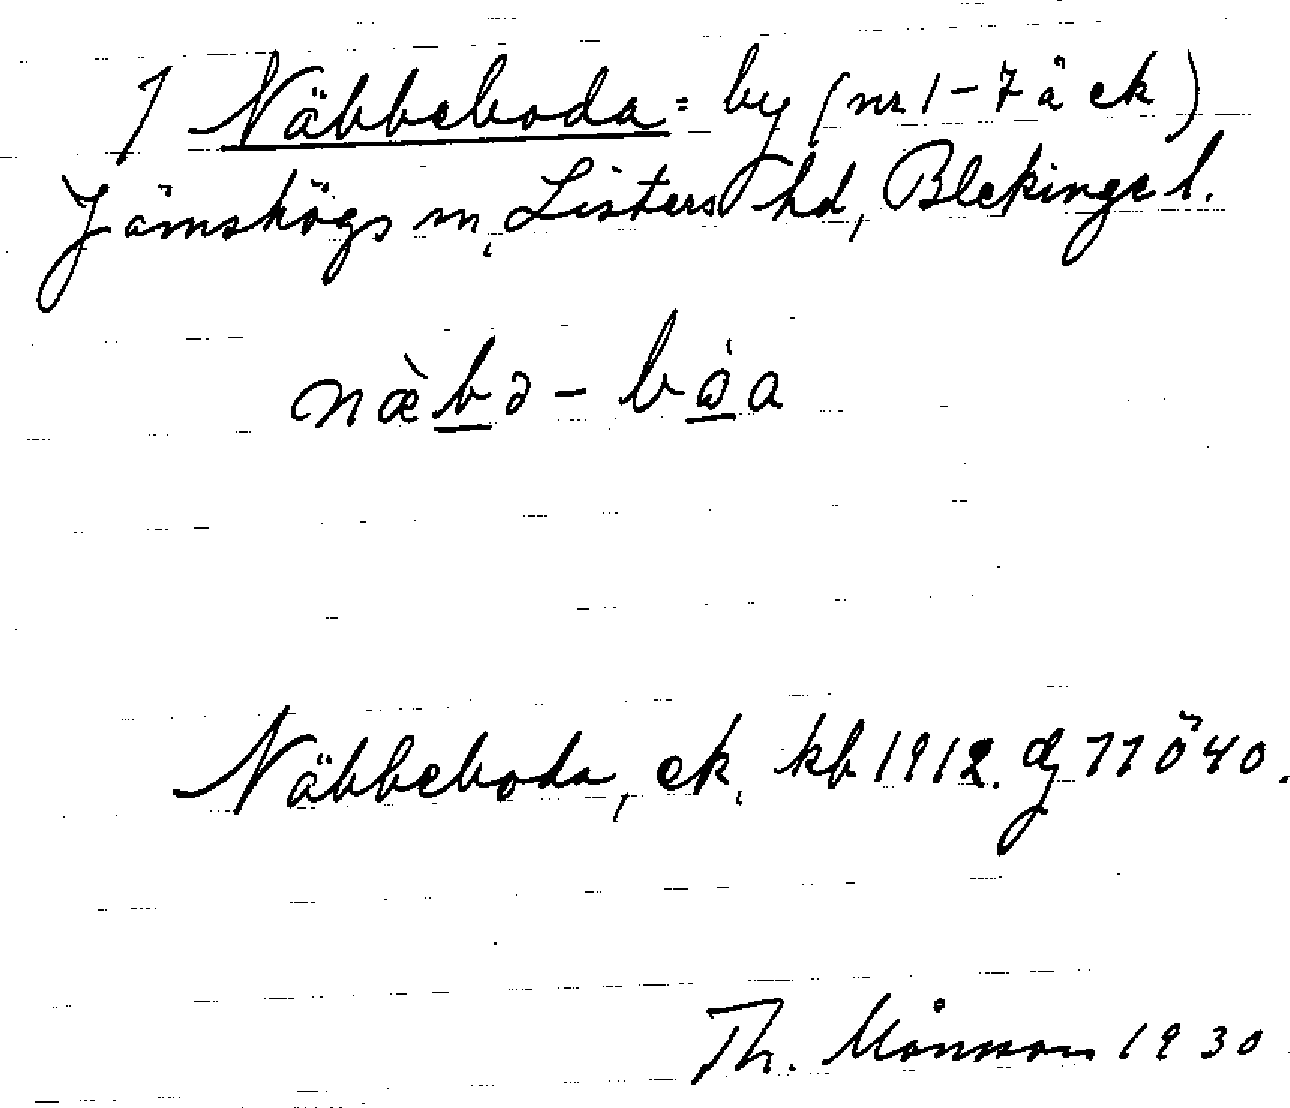 1 Näbbeboda = by (nr 1-7 ä ek)
Jämshögs sn, Listers hd, Blekinge l.
næ̀bə - bǻa
Näbbeboda, ek. kb 1912. dj 11 ö 40.
Th. Månsson 1930